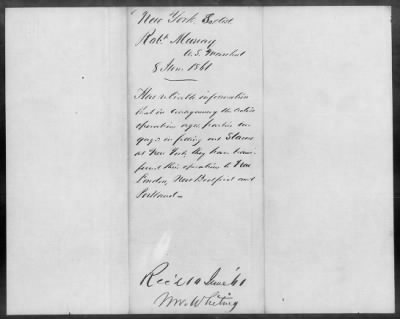 New York. S. Dist.
Robt. Murray
U.S. Marshal
8 June. 1861
Has reliable information
that in consequence the active
operations agst. parties en-
gaged in fitting out Slavers
at New York, they have trans-
ferred their operations to New
London, New Bedford and
Portland.
Rec'd 10 June '61
Whiting